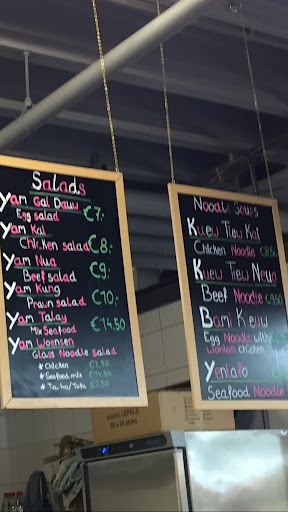 Salads
Yam Gai Dauw
Egg salad €7,-
Yam Kai
Chicken salad €8,-
Yam Nua
Beef salad €9,-
Yam Kung
Prawn salad €10,-
Yam Talay
Mix Seafood €14.50
Yam Woensen
Glass Noodle salad
* Chicken
* Seafood mix €14.50
* Tahu/Tofu
Noodle Soups
Kuew Tiew Kai
Chicken Noodle €8.50
Kuew Tiew Nuua
Beef Noodle €9.50
Bami
Egg Noodle with
wonton chicken
Yentafo
Seafood Noodle